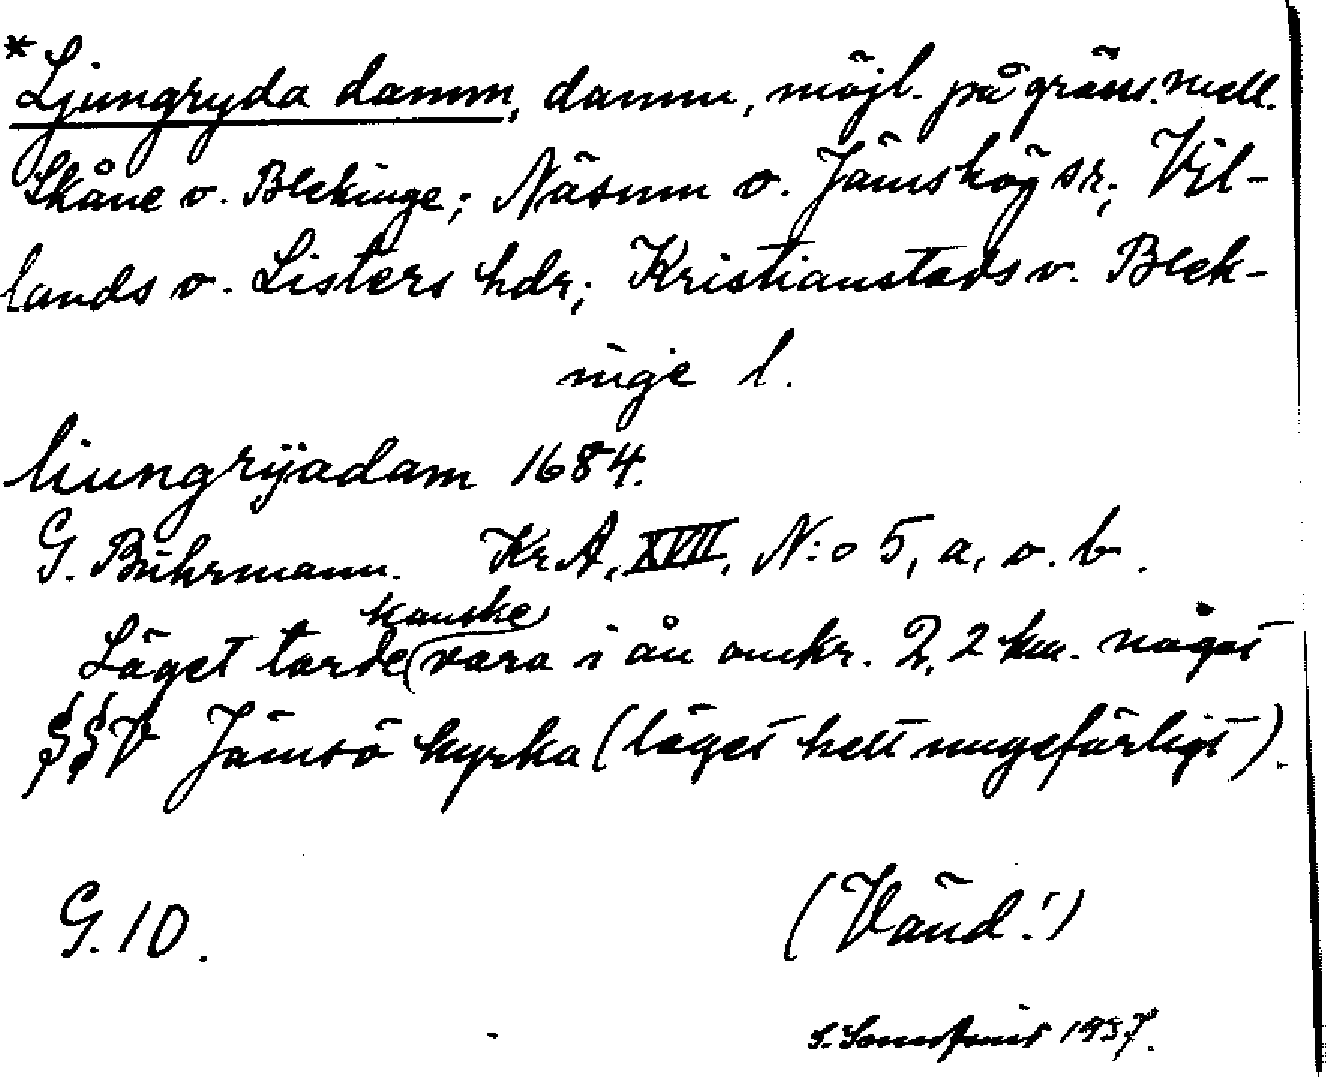 *Ljungryda damm, damm, möjl. på gräns. mell.
Skåne o. Blekinge; Näsum o. Jämshög sr; Vil-
lands o. Listers hdr; Kristianstads o. Blek-
inge l.
liungrÿadam 1684.
G. Buhrmann. KrA, XVII, N:o 5, a, o. b.
Läget torde (kanske) vara i ån omkr. 2,2 km. något
SSV Jämsö kyrka (läget helt ungefärligt).
G. 10. (Vänd!)
S. 1937.